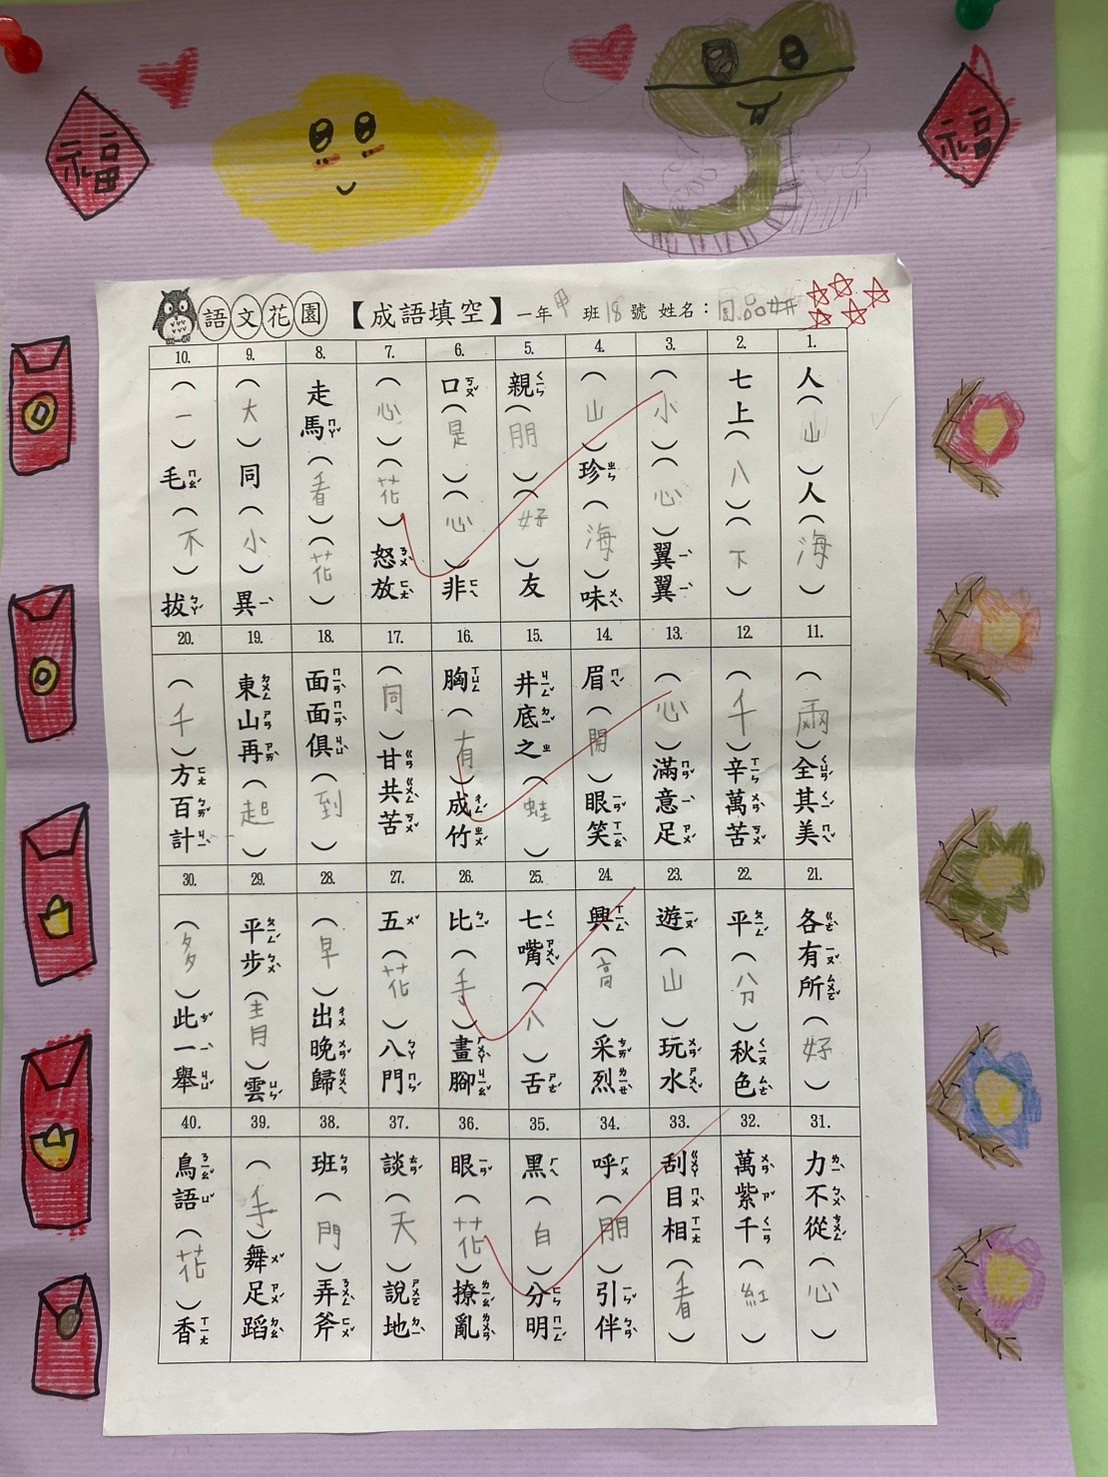 福
福
語文花園
【成語填空】一年甲班18號 姓名：
1.
人(山)人(海)
2.
七上(八)(下)
3.
(小)(心)翼翼
4.
(山)珍(海)味
5.
親(朋)(好)友
6.
口(是)(心)非
7.
(心)(花)怒放
8.
走馬(看)(花)
9.
(大)同(小)異
10.
(一)毛(不)拔
11.
(兩)全其美
12.
(千)辛萬苦
13.
(心)滿意足
14.
眉(開)眼笑
15.
井底之(蛙)
16.
胸(有)成竹
17.
(同)甘共苦
18.
面面俱(到)
19.
東山再(起)
20.
(千)方百計
21.
各有所(好)
22.
平(分)秋色
23.
遊(山)玩水
24.
興(高)采烈
25.
七嘴(八)舌
26.
比(手)畫腳
27.
五(花)八門
28.
(早)出晚歸
29.
平步(青)雲
30.
(多)此一舉
31.
力不從(心)
32.
萬紫千(紅)
33.
刮目相(看)
34.
呼(朋)引伴
35.
黑(白)分明
36.
眼(花)撩亂
37.
談(天)說地
38.
班(門)弄斧
39.
(手)舞足蹈
40.
鳥語(花)香